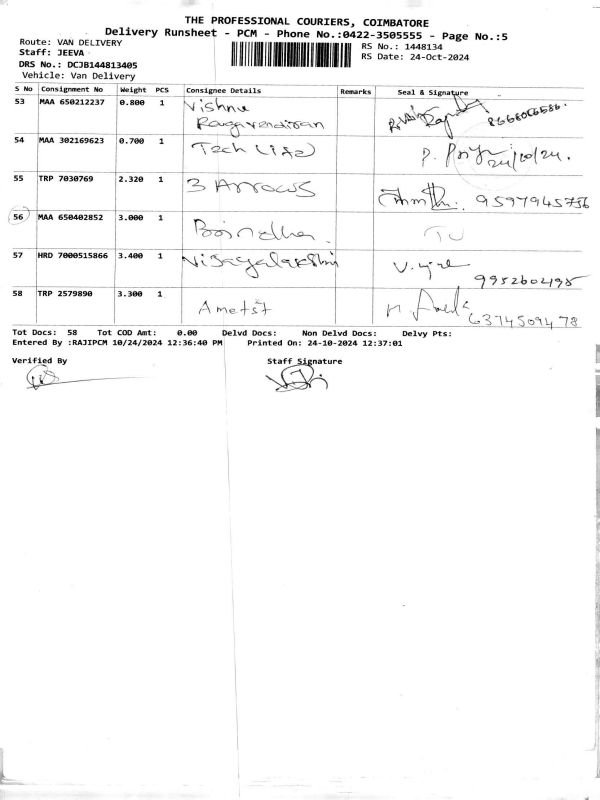 THE PROFESSIONAL COURIERS, COIMBATORE
Delivery Runsheet - PCM - Phone No.:0422-3505555 - Page No.:5
Route: VAN DELIVERY
Staff: JEEVA
DRS No.: DCJB144813405
Vehicle: Van Delivery
RS No.: 1448134
RS Date: 24-Oct-2024
S No Consignment No Weight PCS Consignee Details Remarks Seal & Signature
53 MAA 650212237 0.800 1 Vishnu
Ragavendiran
54 MAA 302169623 0.700 1 Tech Life 24/10/24.
55 TRP 7030769 2.320 1 3 Arrows
56 MAA 650402852 3.000 1
57 HRD 7000515866 3.400 1 Vijayalakshmi
9952604195
58 TRP 2579890 3.300 1
6374509478
Tot Docs: 58 Tot COD Amt: 0.00 Delvd Docs: Non Delvd Docs: Delvy Pts:
Entered By :RAJIPCM 10/24/2024 12:36:40 PM Printed On: 24-10-2024 12:37:01
Verified By Staff Signature